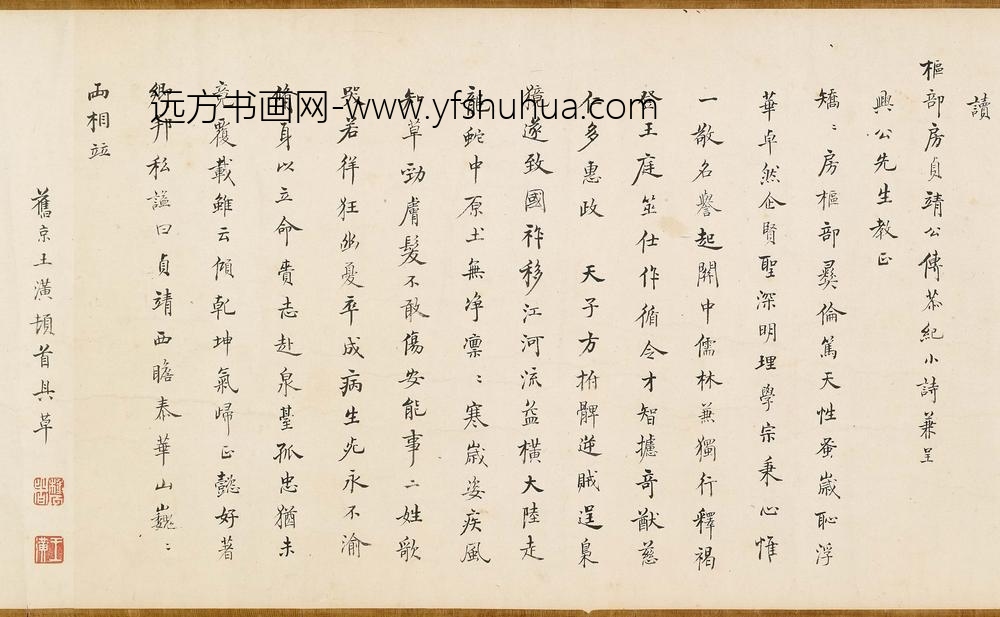 讀
樞部房貞靖公傳恭紀小詩兼呈
興公先生教正
矯〻房樞部彛倫篤天性蚤嵗恥浮
華卓然企賢聖深明理學宗秉心惟
一敬名譽起關中儒林兼獨行釋褐
登王庭筮仕作循令才智攄奇猷慈
仁多惠政 天子方拊髀逆賊逞梟
獍遂致國祚移江河流益橫大陸走
龍蛇中原土無凈凛〻寒嵗姿疾風
知草勁膚髮不敢傷安能事二姓歌
哭若徉狂幽憂卒成病生死永不渝
脩身以立命賫志赴泉臺孤忠猶未
竟覆載雖云傾乾坤氣歸正懿好著
鄉邦私謚曰貞靖西瞻泰華山巍〻
兩相竝
舊京王潢頓首具草
王潢
远方书画网-www.yfshuhua.com